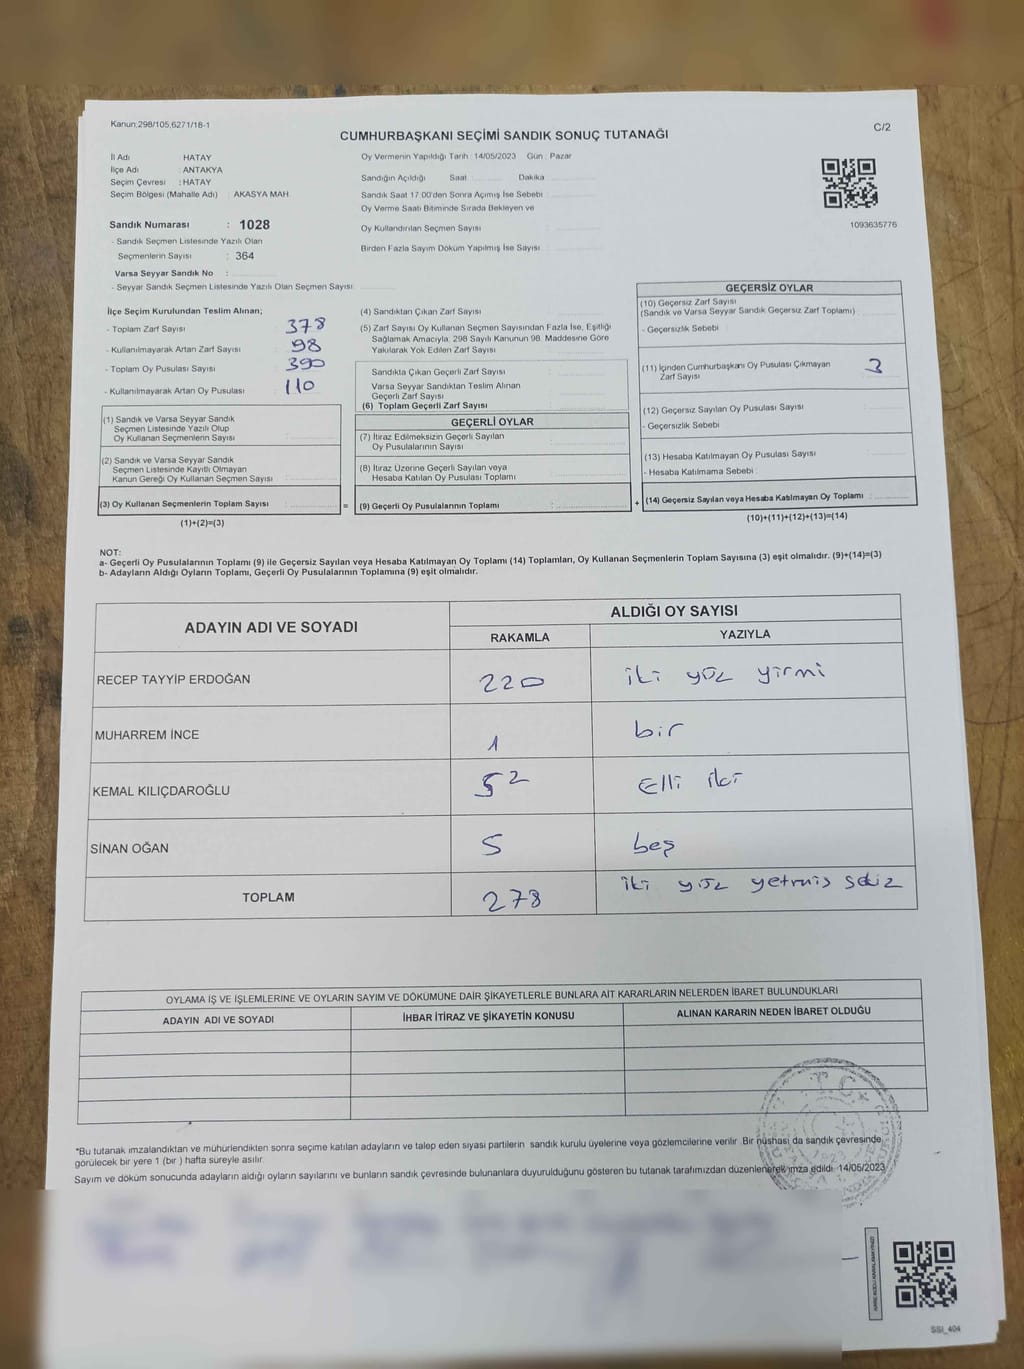 Kanun;298/105,6271/18-1
C/2
CUMHURBAŞKANI SEÇİMİ SANDIK SONUÇ TUTANAĞI
İl Adı HATAY
İlçe Adı : ANTAKYA
Seçim Çevresi : HATAY
Seçim Bölgesi (Mahalle Adı) : AKASYA MAH.
Sandık Numarası : 1028
- Sandık Seçmen Listesinde Yazılı Olan
Seçmenlerin Sayısı : 364
Varsa Seyyar Sandık No :
- Seyyar Sandık Seçmen Listesinde Yazılı Olan Seçmen Sayısı
Oy Vermenin Yapıldığı Tarih : 14/05/2023 Gün : Pazar
Sandığın Açıldığı Saat Dakika
Sandık Saat 17.00'den Sonra Açımış İse Sebebi :
Oy Verme Saati Bitiminde Sırada Bekleyen ve
Oy Kullandırılan Seçmen Sayısı
Birden Fazla Sayım Döküm Yapılmış İse Sayısı
1093635776
İlçe Seçim Kurulundan Teslim Alınan;
- Toplam Zarf Sayısı 378
- Kullanılmayarak Artan Zarf Sayısı 98
- Toplam Oy Pusulası Sayısı 390
- Kullanılmayarak Artan Oy Pusulası 110
(1) Sandık ve Varsa Seyyar Sandık
Seçmen Listesinde Yazılı Olup
Oy Kullanan Seçmenlerin Sayısı
(2) Sandık ve Varsa Seyyar Sandık
Seçmen Listesinde Kayıtlı Olmayan
Kanun Gereği Oy Kullanan Seçmen Sayısı
(3) Oy Kullanan Seçmenlerin Toplam Sayısı : =
(1)+(2)=(3)
(4) Sandıktan Çıkan Zarf Sayısı
(5) Zarf Sayısı Oy Kullanan Seçmen Sayısından Fazla İse, Eşitliği
Sağlamak Amacıyla, 298 Sayılı Kanunun 98. Maddesine Göre
Yakılarak Yok Edilen Zarf Sayısı
Sandıkta Çıkan Geçerli Zarf Sayısı
Varsa Seyyar Sandıktan Teslim Alınan
Geçerli Zarf Sayısı
(6) Toplam Geçerli Zarf Sayısı
GEÇERLİ OYLAR
(7) İtiraz Edilmeksizin Geçerli Sayılan
Oy Pusulalarının Sayısı
(8) İtiraz Üzerine Geçerli Sayılan veya
Hesaba Katılan Oy Pusulası Toplamı
(9) Geçerli Oy Pusulalarının Toplamı : +
GEÇERSİZ OYLAR
(10) Geçersiz Zarf Sayısı
(Sandık ve Varsa Seyyar Sandık Geçersiz Zarf Toplamı)
- Geçersizlik Sebebi
(11) İçinden Cumhurbaşkanı Oy Pusulası Çıkmayan 3
Zarf Sayısı
(12) Geçersiz Sayılan Oy Pusulası Sayısı
- Geçersizlik Sebebi
(13) Hesaba Katılmayan Oy Pusulası Sayısı
- Hesaba Katılmama Sebebi :
(14) Geçersiz Sayılan veya Hesaba Katılmayan Oy Toplamı
(10)+(11)+(12)+(13)=(14)
NOT:
a- Geçerli Oy Pusulalarının Toplamı (9) ile Geçersiz Sayılan veya Hesaba Katılmayan Oy Toplamı (14) Toplamları, Oy Kullanan Seçmenlerin Toplam Sayısına (3) eşit olmalıdır. (9)+(14)=(3)
b- Adayların Aldığı Oyların Toplamı, Geçerli Oy Pusulalarının Toplamına (9) eşit olmalıdır.
ADAYIN ADI VE SOYADI ALDIĞI OY SAYISI
RAKAMLA YAZIYLA
RECEP TAYYİP ERDOĞAN 220 iki yüz yirmi
MUHARREM İNCE 1 bir
KEMAL KILIÇDAROĞLU 52 Elli iki
SİNAN OĞAN 5 beş
TOPLAM 278 iki yüz yetmiş sekiz
OYLAMA İŞ VE İŞLEMLERİNE VE OYLARIN SAYIM VE DÖKÜMÜNE DAİR ŞİKAYETLERLE BUNLARA AİT KARARLARIN NELERDEN İBARET BULUNDUKLARI
ADAYIN ADI VE SOYADI İHBAR İTİRAZ VE ŞİKAYETİN KONUSU ALINAN KARARIN NEDEN İBARET OLDUĞU
*Bu tutanak imzalandıktan ve mühürlendikten sonra seçime katılan adayların ve talep eden siyasi partilerin sandık kurulu üyelerine veya gözlemcilerine verilir. Bir nüshası da sandık çevresinde
görülecek bir yere 1 (bir) hafta süreyle asılır.
Sayım ve döküm sonucunda adayların aldığı oyların sayılarını ve bunların sandık çevresinde bulunanlara duyurulduğunu gösteren bu tutanak tarafımızdan düzenlenerek imza edildi. 14/05/2023
T.C.
1923
SSI_404